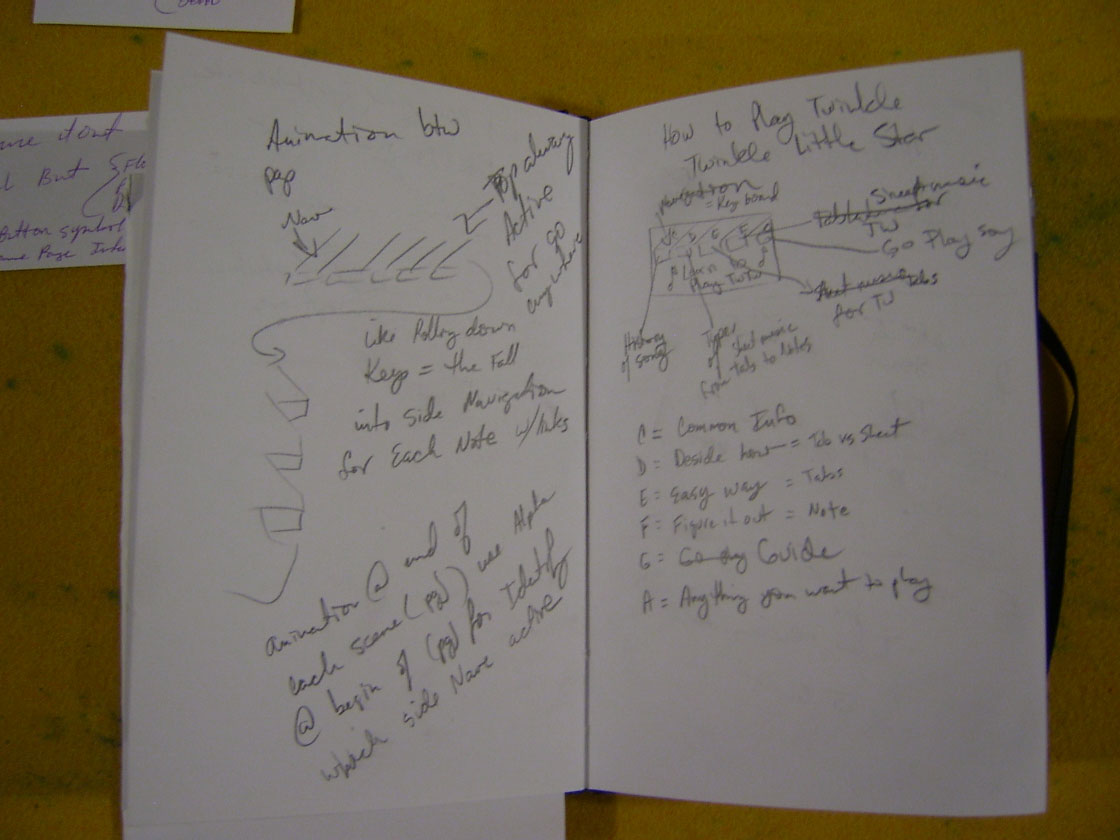 ure it out
But
Button symbol
me Page
Animation btw
page
Nav
Top always
Active
for go
anywhere
like Rolling down
Keys = the Fall
into side Navigation
for Each Note w/links
animation @ end of
each scene (pg) use Alpha
@ begin of (pg) for Identify
which side Nave active
How to Play Twinkle
Twinkle Little Star
Navigation
= Key board
Sheet music
TW
Go Play song
Learn to
Play TwTw
Sheet music Tabs
for TW
History
of song
Types
of sheet music
from tabs to Notes
C = Common Info
D = Deside how = Tab vs Sheet
E = Easy way = Tabs
F = Figure it out = Note
G = Guide
A = Anything you want to play